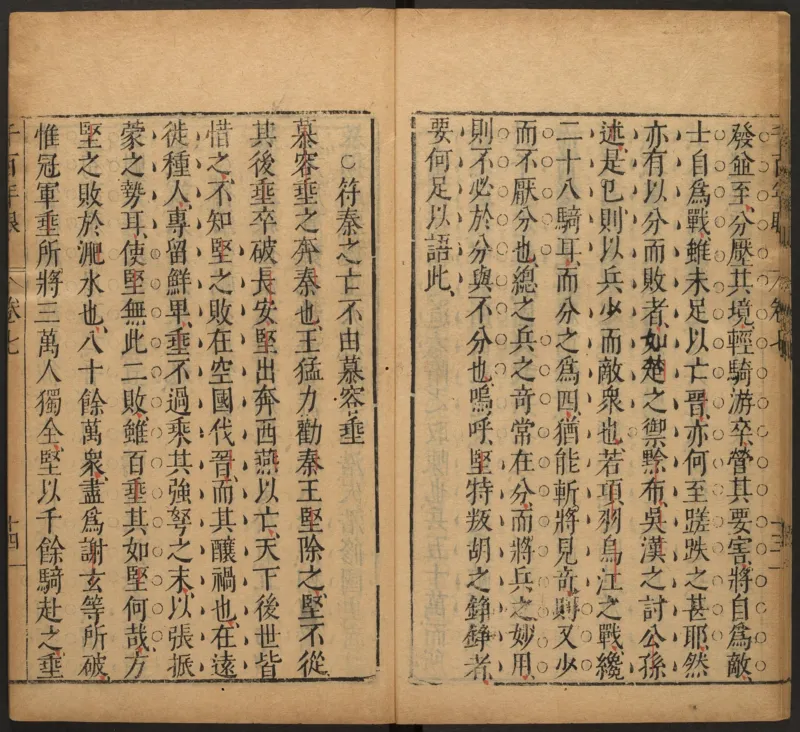 發並至分壓其境輕騎游卒營其要害將自爲敵
士自爲戰雖未足以亡晉亦何至蹉跌之甚耶然
亦有以分而敗者如楚之禦黥布吳漢之討公孫
述是已則以兵少而敵衆也若項羽烏江之戰纔
二十八騎耳而分之爲四猶能斬將見竒則又少
而不厭分也總之兵之竒常在分而將兵之妙用
則不必於分與不分也嗚呼堅特叛胡之錚錚者
要何足以語此
○符秦之亡不由慕容垂
慕容垂之奔秦也王猛力勸秦王堅除之堅不從
其後垂卒破長安堅出奔西燕以亡天下後世皆
惜之不知堅之敗在空國伐晉而其釀禍也在遠
徙種人專留鮮卑垂不過乘其強弩之末以張振
蒙之勢耳使堅無此二敗雖百垂其如堅何哉方
堅之敗於淝水也八十餘萬衆盡爲謝玄等所破
惟冠軍垂所將三萬人獨全堅以千餘騎赴之垂
千百年眼 卷七 十四